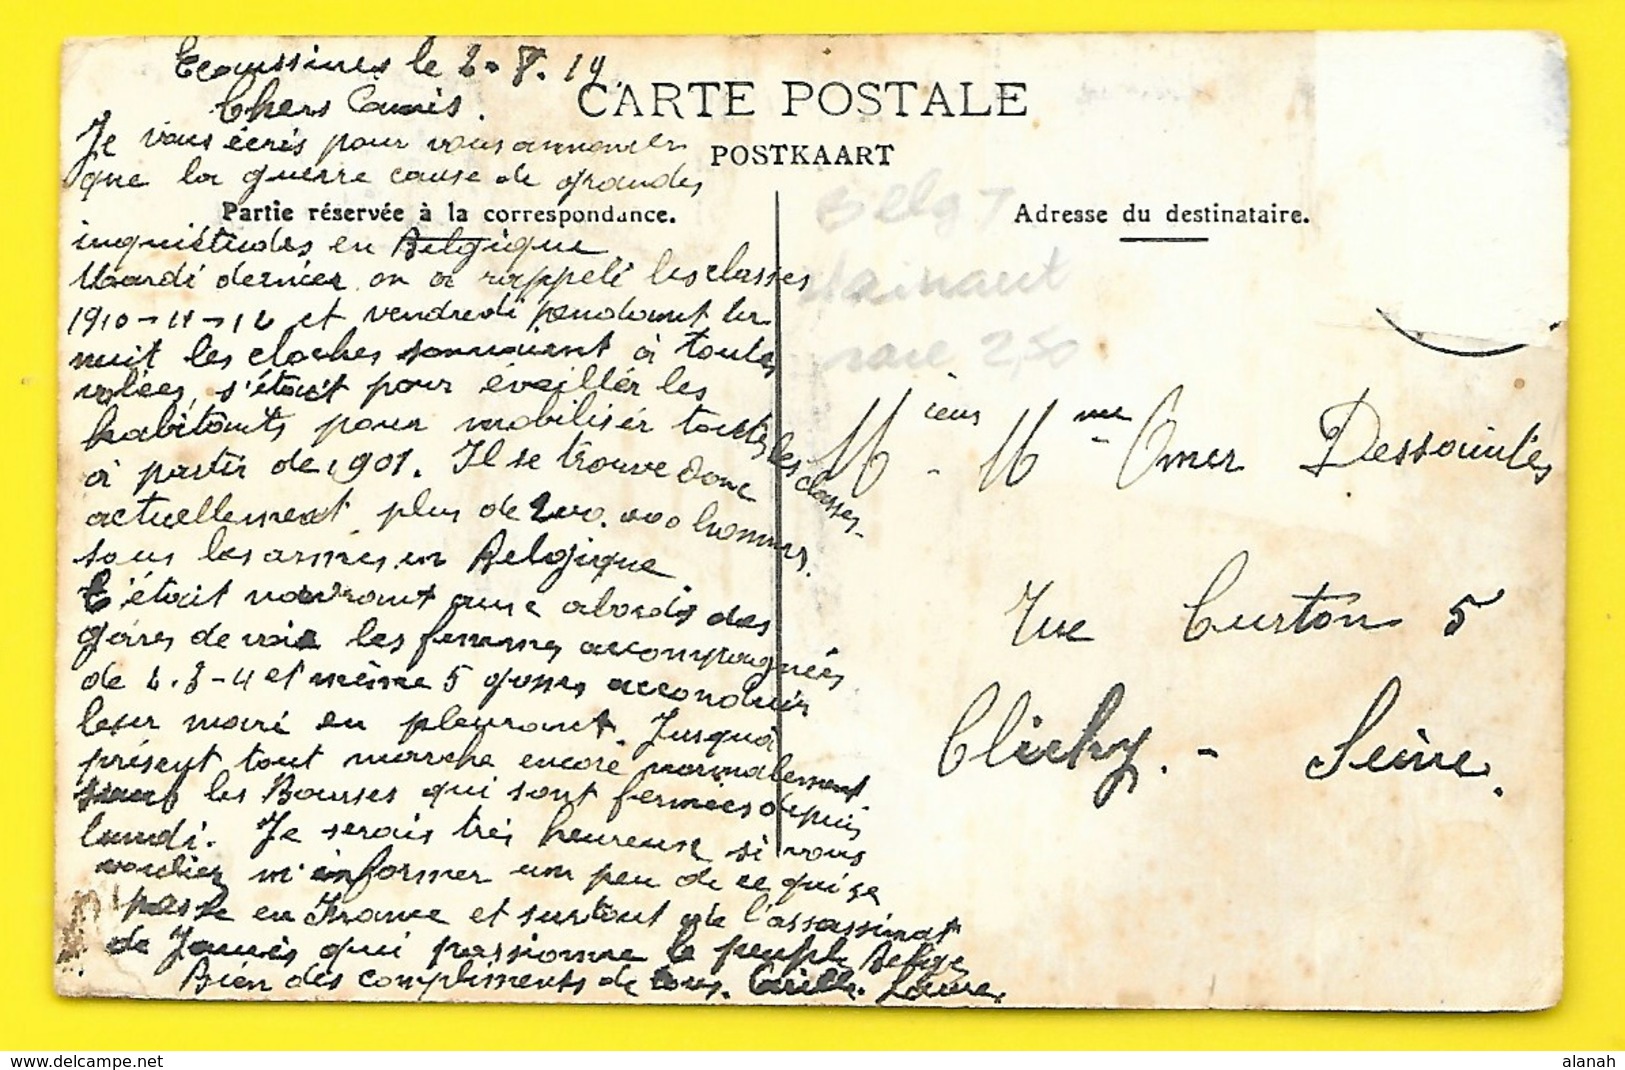 Ecaussines le 2-8.14
Chers Amis.
CARTE POSTALE
Je vous écris pour vous annoncer
POSTKAART
que la guerre cause de grandes
Partie réservée à la correspondance.
Adresse du destinataire.
inquiétudes en Belgique
Mardi dernier on a rappelé les classes
1910-11-12 et vendredi pendant la
nuit les cloches sonnaient à toutes
volées, s'était pour éveiller les
habitants pour mobiliser toutes les classes
à partir de 1901. Il se trouve donc
actuellement plus de 200.000 hommes
sous les armes en Belgique.
C'était navrant aux abords des
gares de voir les femmes accompagnées
de 2.3-4 et même 5 gosses acconduir
leur mari en pleurant. Jusqu'à
présent tout marche encore normalement
sauf les Bourses qui sont fermées depuis
lundi. Je serais très heureuse si vous
vouliez m'informer un peu de ce qui se
passe en France et surtout de l'assassinat
de Jaurès qui passionne le peuple Belge
Bien des compliments de tous. Laure
Belg 7
Hainaut
rare 2,50
Mieur - Mme Omer Dessaintes
Rue Curton 5
Clichy. - Seine.
www.delcampe.net
alanah